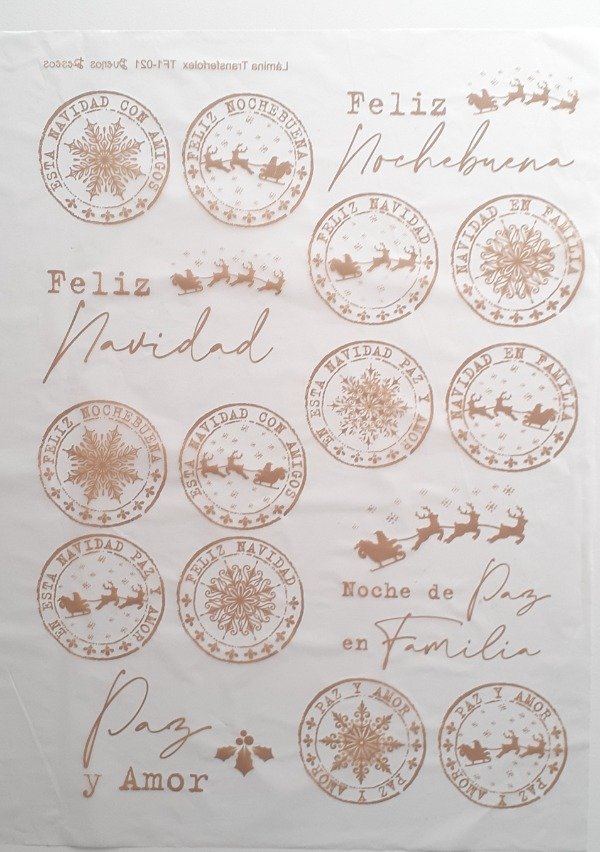 Lámina Transferfolex TF1-021 Buenos Deseos
ESTA NAVIDAD CON AMIGOS
FELIZ NOCHEBUENA
Feliz
Nochebuena
FELIZ NAVIDAD
NAVIDAD EN FAMILIA
Feliz
Navidad
EN ESTA NAVIDAD PAZ Y AMOR
NAVIDAD EN FAMILIA
FELIZ NOCHEBUENA
ESTA NAVIDAD CON AMIGOS
EN ESTA NAVIDAD PAZ Y AMOR
FELIZ NAVIDAD
Noche de Paz
en Familia
Paz
y Amor
PAZ Y AMOR
PAZ Y AMOR
PAZ Y AMOR
PAZ Y AMOR
PAZ Y AMOR
PAZ Y AMOR